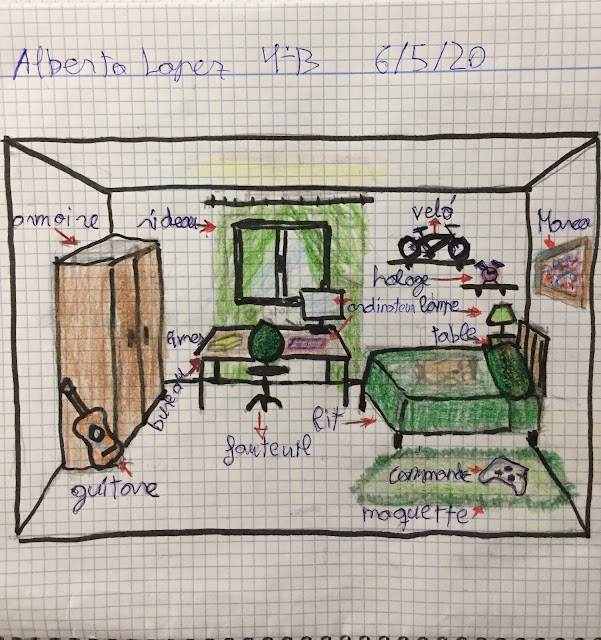 Alberto Lopez 4ºB 6/5/20
armoire
rideau
veló
Marco
hologe
ordinateur
lampe
table
livres
bureau
lit
fauteuil
guitare
commande
moquette